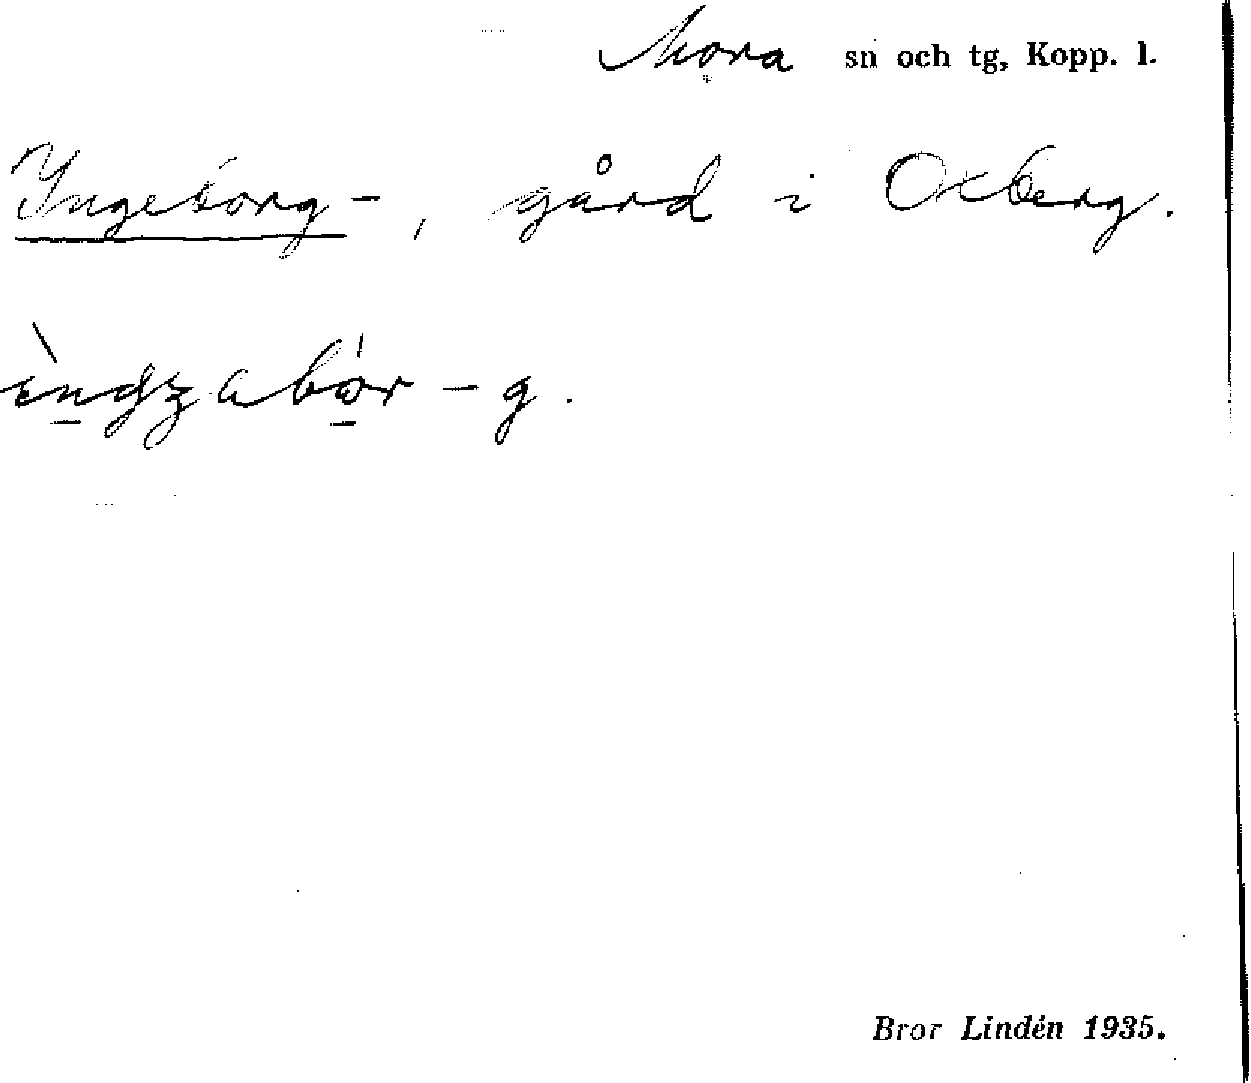 Mora sn och tg, Kopp. l.
Ingeborg-, gård i Oxberg.
ìngzabór - g.
Bror Lindén 1935.